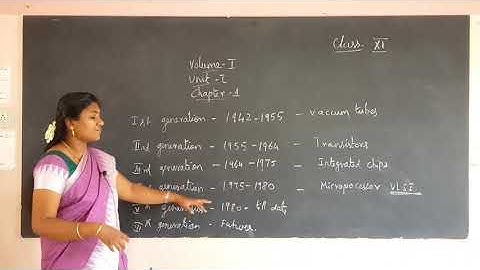 Class XI
Volume-I
Unit-I
Chapter-1
Ist generation - 1942-1955 - vaccum tubes
IInd generation - 1955-1964 - Transistors
IIIrd generation - 1964-1975 - Integrated chips
generation - 1975-1980 - Microprocessor VLSI
V generation - 1980 - till date
VI generation - Future